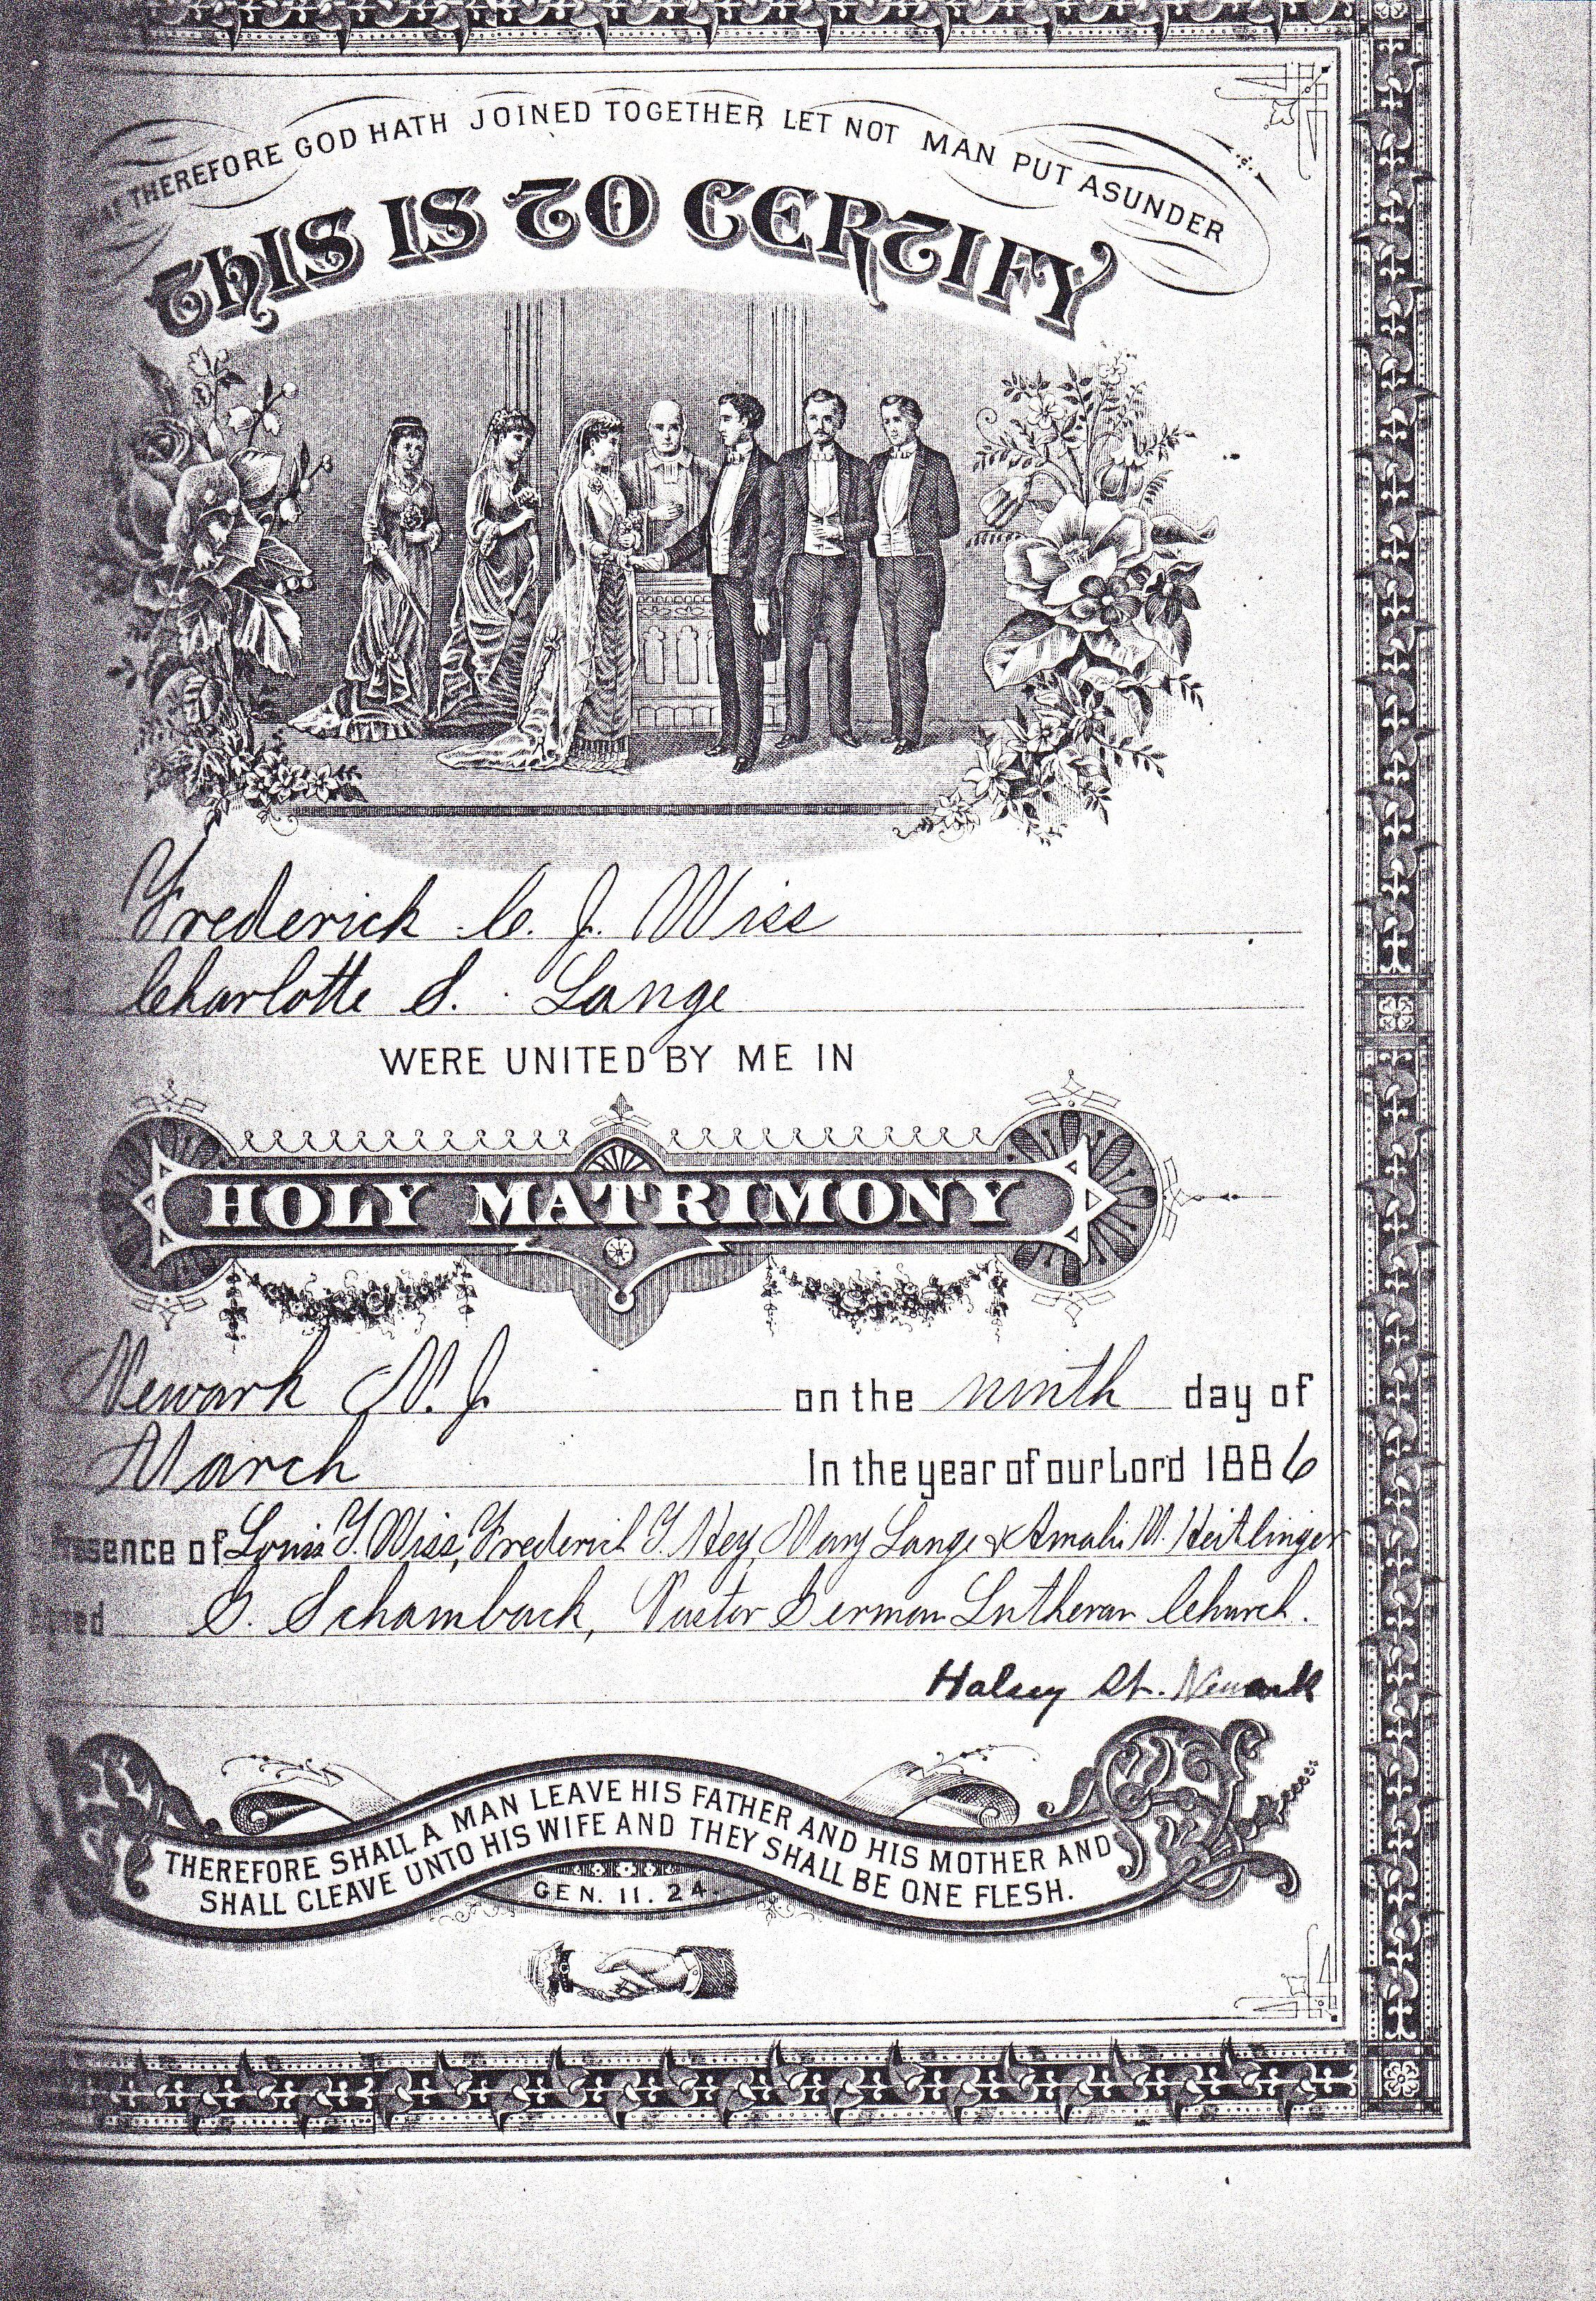 THEREFORE GOD HATH JOINED TOGETHER LET NOT MAN PUT ASUNDER
THIS IS TO CERTIFY
Frederick C. J. Wiss
Charlotte S. Lange
WERE UNITED BY ME IN
HOLY MATRIMONY
Newark N. J. on the ninth day of
March In the year of our Lord 1886
Presence of Louis T. Wiss, Frederick T. Hey, Mary Lange & Amalie M. Heitlinger
G. Schambach, Pastor German Lutheran Church.
Halsey St. Newark
THEREFORE SHALL A MAN LEAVE HIS FATHER AND HIS MOTHER AND
SHALL CLEAVE UNTO HIS WIFE AND THEY SHALL BE ONE FLESH.
GEN. 11. 24.